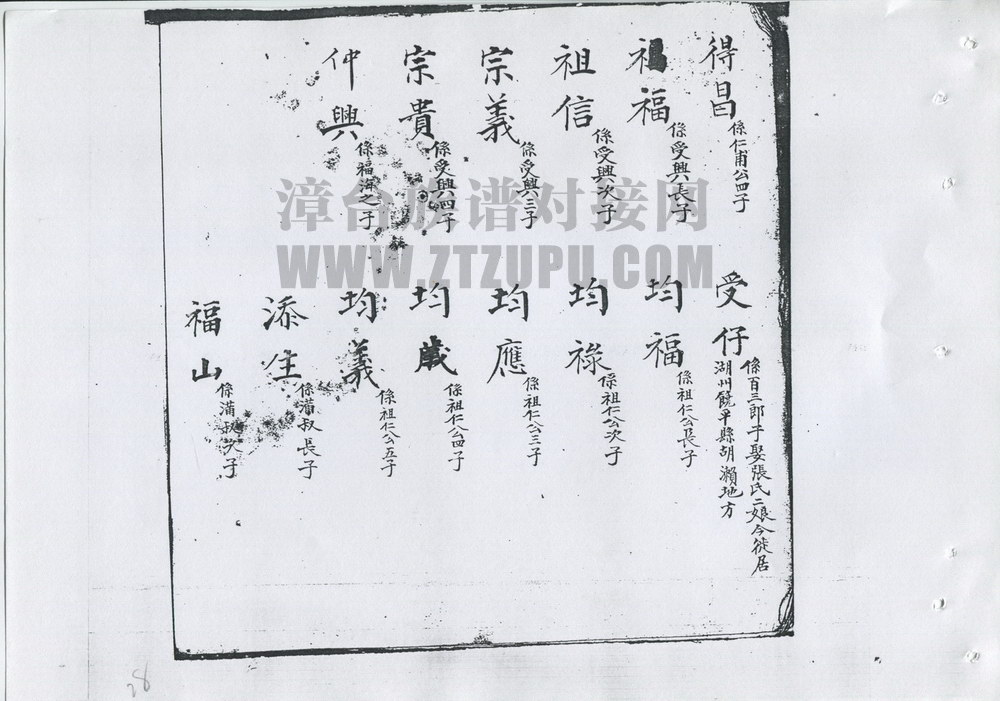 得昌 係仁甫公四子
祖福 係受興長子
祖信 係受興次子
宗義 係受興三子
宗貴 係受興四子
仲興 係福海之子
受仔 係百三郎子娶張氏二娘今徙居
湖州饒平縣胡瀨地方
均福 係祖仁公長子
均祿 係祖仁公次子
均應 係祖仁公三子
均歲 係祖仁公四子
均義 係祖仁公五子
添生 係滿叔長子
福山 係滿叔次子
漳台族谱对接网
WWW.ZTZUPU.COM
28